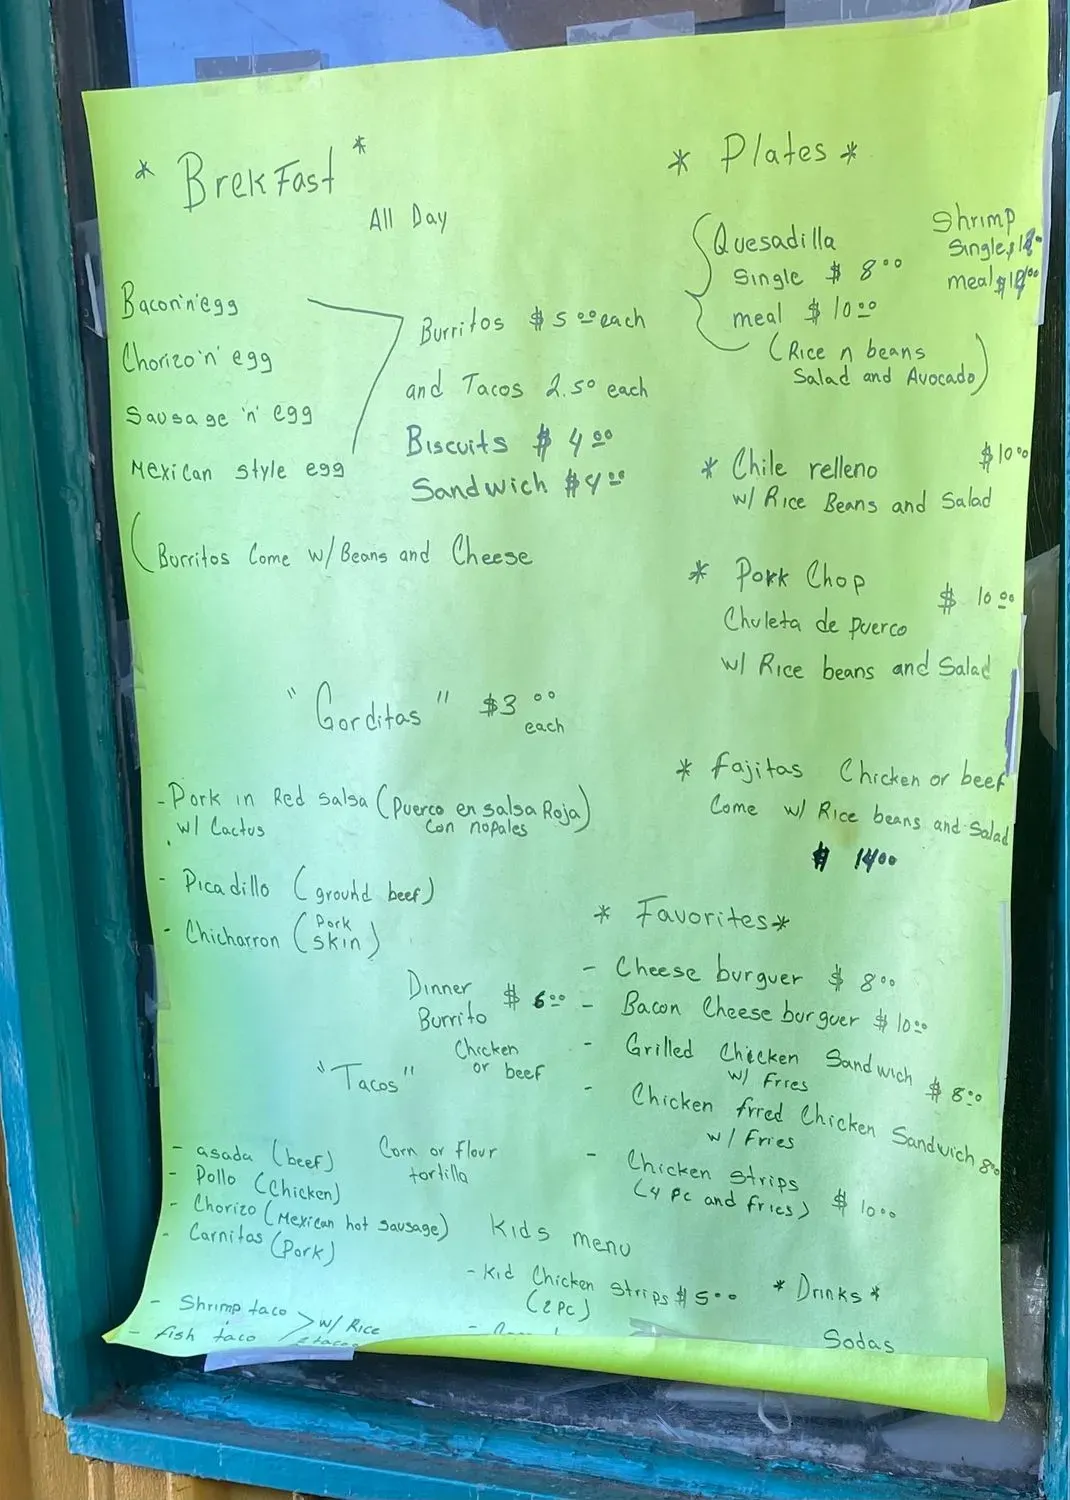 * BrekFast *
All Day
Bacon'n'egg
Chorizo'n' egg
Sausage 'n' egg
Mexican style egg
Burritos $ 5 00 each
and Tacos 2.50 each
Biscuits $ 4 00
Sandwich $ 4 00
(Burritos Come w/ Beans and Cheese
"Gorditas" $3 00
each
- Pork in Red salsa (puerco en salsa Roja)
w/ Cactus con nopales
- Picadillo (ground beef)
- Chicharron (Pork
skin)
Dinner $ 6 00
Burrito
Chicken
or beef
"Tacos"
- asada (beef)
- Pollo (Chicken)
- Chorizo (Mexican hot sausage)
- Carnitas (Pork)
Corn or flour
tortilla
- Shrimp taco
- fish taco
w/ Rice
2 tacos
Kids menu
- Kid Chicken strips $ 5 00
(2 PC)
* Plates *
Quesadilla
Single $ 8 00
meal $ 10 00
(Rice n beans
Salad and Avocado)
Shrimp
Single
meal
* Chile relleno $10 00
w/ Rice Beans and Salad
* Pork Chop $ 10 00
Chuleta de puerco
w/ Rice beans and Salad
* Fajitas Chicken or beef
Come w/ Rice beans and Salad
$ 14 00
* Favorites *
- Cheese burguer $ 8 00
- Bacon Cheese burguer $ 10 00
- Grilled Chicken Sandwich $ 8 00
w/ Fries
- Chicken frred Chicken Sandwich 8 00
w/ Fries
- Chicken strips
(4 pc and fries) $ 10 00
* Drinks *
Sodas